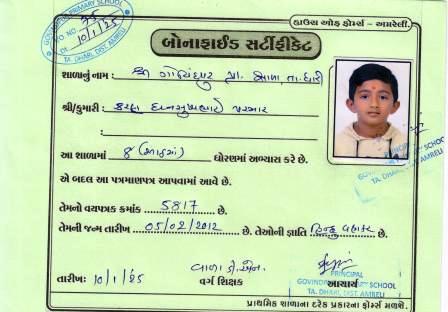 GOVINDPUR PRIMARY SCHOOL
O. NO. 75
DT. 10/1/25
TA. DHARI, DIST. AMRELI
હાઉસ ઓફ ફોર્મ્સ – અમરેલી.
બોનાફાઈડ સર્ટીફીકેટ
શાળાનું નામ : શ્રી ગોવિંદપુર પ્રા. શાળા, તા. ધારી
શ્રી/કુમારી : પરમાર
:
આ શાળામાં 8 (આઠમાં) ધોરણમાં અભ્યાસ કરે છે.
એ બદલ આ પત્રમાણપત્ર આપવામાં આવે છે.
તેમનો વયપત્રક ક્રમાંક 5817 છે.
તેમની જન્મ તારીખ 05/02/2012 છે. તેઓની જ્ઞાતિ હિન્દુ વણકર છે.
PRINCIPAL
SCHOOL
TA. DHARI, AMRELI
તારીખ: 10/1/25
વાળા
વર્ગ શિક્ષક
PRINCIPAL
આચાર્ય
GOVINDPUR PRIMARY SCHOOL
TA. DHARI, DIST. AMRELI
પ્રાથમિક શાળાના દરેક પ્રકારના ફોર્મ્સ મળશે.